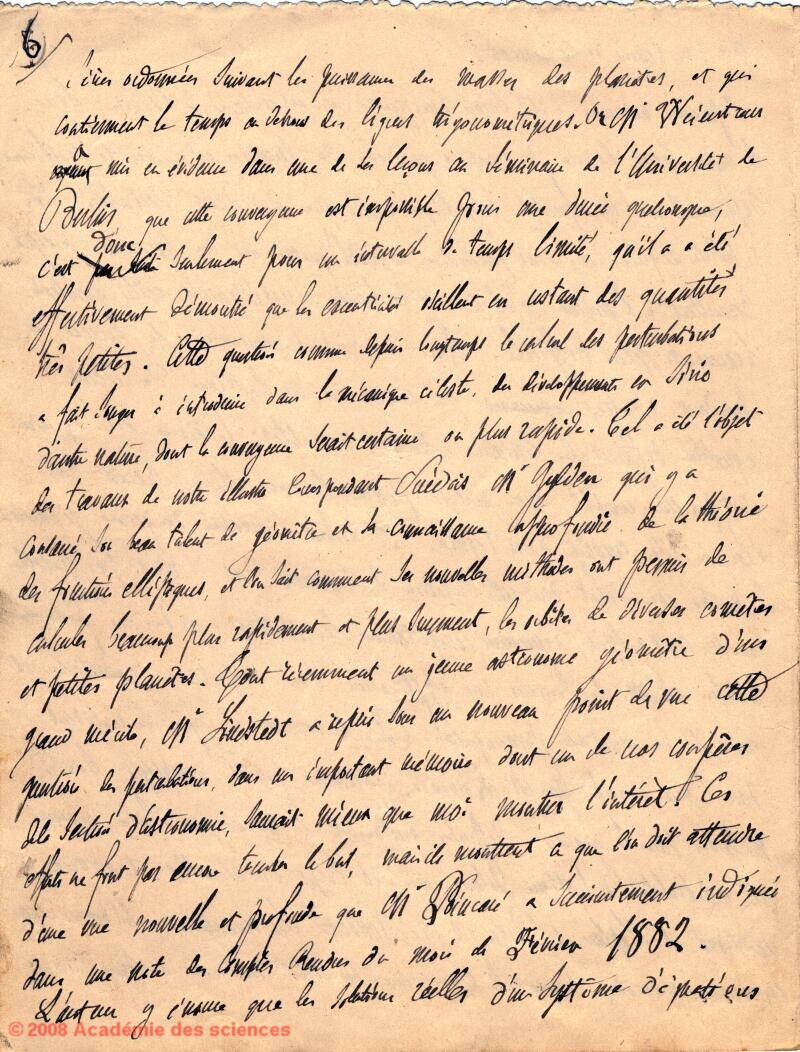 6
séries ordonnées suivant les puissances des masses des planètes, et qui
contiennent le temps en dehors des lignes trigonométriques. Or Mr Weierstrass
a mis en évidence dans une de ses leçons au Séminaire de l'Université de
Berlin que cette convergence est impossible pour une durée quelconque,
c'est donc seulement pour un intervalle de temps limité, qu'il a été
effectivement démontré que les excentricités oscillent en restant des quantités
très petites. Cette question comme depuis longtemps le calcul des perturbations
a fait songer à introduire dans la mécanique céleste, des développements en série
d'autre nature, dont la convergence serait certaine ou plus rapide. Tel a été l'objet
des travaux de notre illustre correspondant Suédois Mr Gylden qui y a
consacré son beau talent de géomètre et sa connaissance approfondie de la théorie
des fonctions elliptiques, et l'on sait comment ses nouvelles méthodes ont permis de
calculer beaucoup plus rapidement et plus surement, les orbites de diverses comètes
et petites planètes. Tout récemment un jeune astronome géomètre d'un
grand mérite, Mr Lindstedt a repris sous un nouveau point de vue cette
question des perturbations, dans un important mémoire dont un de nos confrères
de la section d'Astronomie, saurait mieux que moi montrer l'intérêt. Ces
efforts ne font pas encore toucher le but, mais ils montrent ce que l'on doit attendre
d'une vue nouvelle et profonde que Mr Poincaré a succinctement indiquée
dans une note des Comptes Rendus du mois de Février 1882.
L'auteur y énonce que les solutions réelles d'un système d'équations
© 2008 Académie des sciences